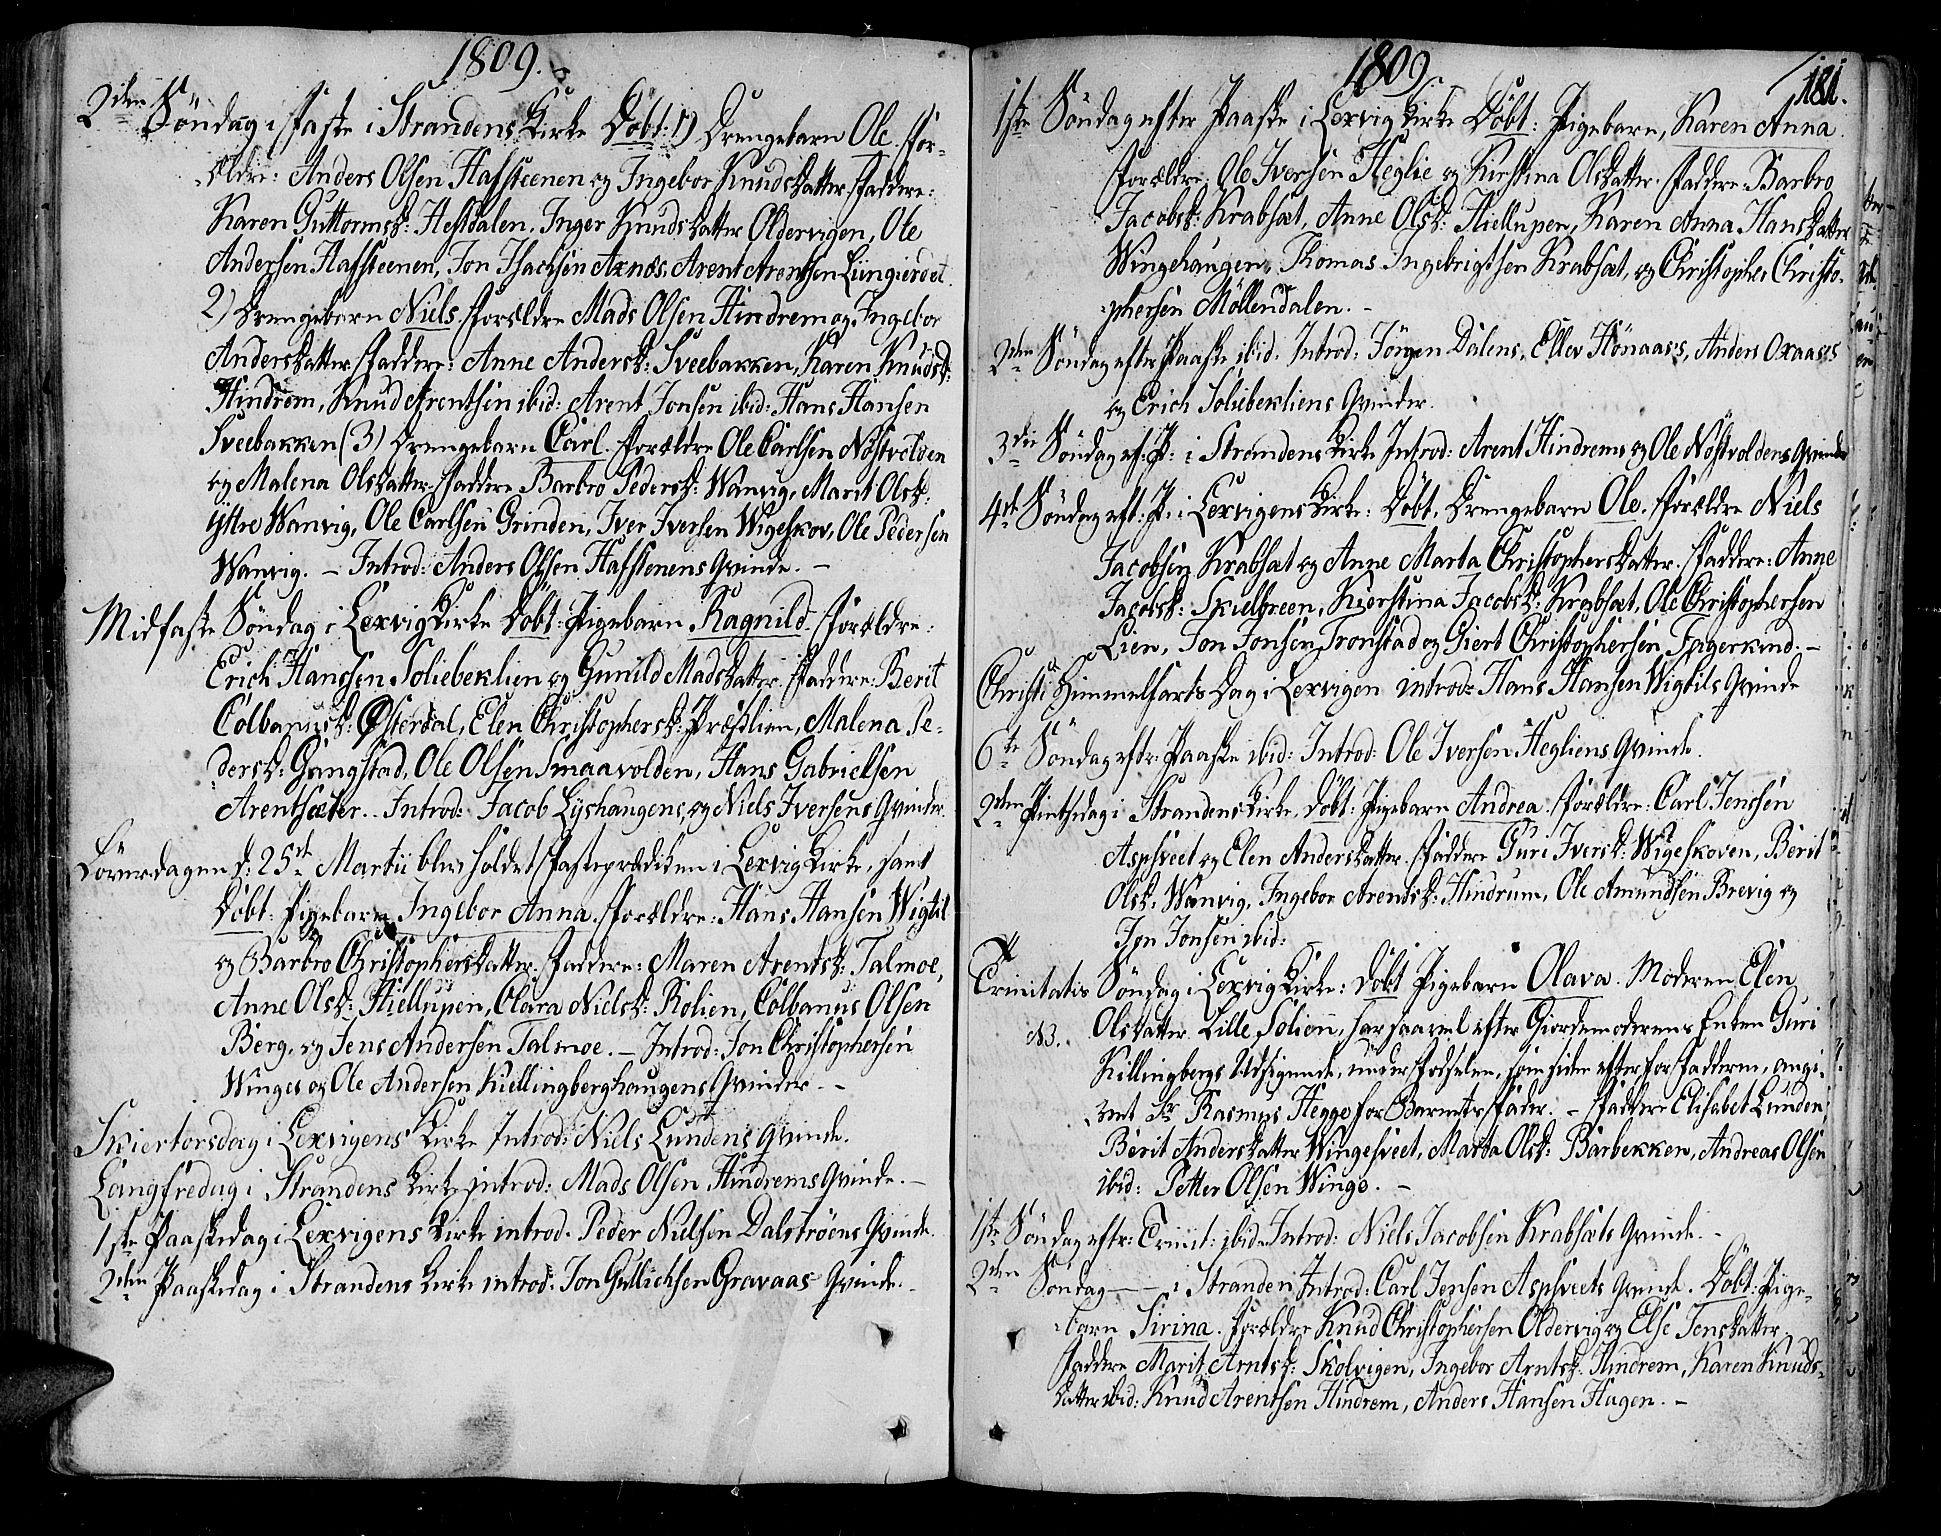 1809.
2den Söndag i Faste i Strandens Kirke Döbt: 1) Drengebarn Ole. For-
ældre: Anders Olsen Hafsteenen og Ingebor Knudsdatter. Faddere:
Karen Guttormsd: Hestdalen. Inger Knudsdatter Oldervigen, Ole
Andersen Hafsteenen, Jon Isachsen Axnæs. Arent Arentsen Liungierdet
2) Drengebarn Niels. Forældre Mads Olsen Hindrem og Ingebor
Andersdatter. Faddere: Anne Andersd: Sveebakken, Karen Knudsd:
Hindrem, Knud Arentsen ibid: Arent Jonsen ibid: Hans Hansen
Sveebakken (3) Drengebarn Carl. Forældre Ole Carlsen Nöstvolden
og Malena Olsdatter. Faddere Barbro Pedersd: Wanvig, Marit Olsd:
ystre Wanvig, Ole Carlsen Grinden, Iver Iversen Wigeskov, Ole Pedersen
Wanvig. – Introd: Anders Olsen Hafstenens Qvinde. –
Midfaste Söndag i Lexvig Kirke Döbt: Pigebarn Ragnild. Forældre:
Erich Hanssen Soliebeklien og Gunild Madsdatter. Faddere: Berit
Colbanusd: Österdal, Elen Christophersd: Præstlien, Malena Pe-
dersd: Gangstad, Ole Olsen Smaavolden, Hans Gabrielsen
Arentsæter.. Introd: Jacob Lyshaugens, og Niels Iversens Qvinder.
Löverdagen d: 25de Martii blev holdet Fasteprædiken i Lexvig Kirke, samt
Döbt: Pigebarn Ingebor Anna. Forældre: Hans Hansen Wigtil
og Barbro Christophersdatter. Faddere: Maren Arentsd: Talmoe,
Anne Olsd: Hiellupen, Clara Nielsd: Rolien, Colbanus Olsen
Berg, og Jens Andersen Talmoe. – Introd: Jon Christophersen
Winges og Ole Andersen Kiellingberghaugens Qvinder. –
Skiertorsdag i Lexvigens Kirke Introd: Niels Lundens Qvinde.
Langfredag i Strandens Kirke introd: Mads Olsen Hindrems Qvinde. –
1ste Paaskedag i Lexvigens Kirke introd. Peder Nielsen Dalströens Qvinde.
2den Paaskedag i Strandens Kirke introd: Jon Gullichsen Gravaas Qvinde.
1809
181.
1ste Söndag efter Paaske i Lexvig Kirke Döbt: Pigebarn, Karen Anna.
Forældre: Ole Iversen Heglie og Kirstina Olsdatter. Faddere Barbro
Jacobsd: Krabsæt, Anne Olsd: Hiellupen, Karen Anna Hansdatter
Wingehaugen, Thomas Ingebrigtsen Krabsæt, og Christopher Christo-
phersen Möllendalen. –
2den Söndag efter Paaske ibid. Introd: Jörgen Dalens, Ellev Hönaases, Anders Oxaases
og Erich Soliebekliens Qvinder.
3die Söndag ef: P: i Strandens Kirke Introd: Arent Hindrems og Ole Nöstvoldens Qvinde
4de Söndag eft: P: i Lexvigens Kirke: Döbt, Drengebarn Ole. Forældre Niels
Jacobsen Krabsæt og Anne Marta Christophersdatter. Faddere: Anne
Jacobsd: Skielhreen, Kierstina Jacobsd: Krabsæt, Ole Christophersen
Lien, Jon Jonsen Tronstad og Giert Christophersen Fagerkind. –
Christi Himmelfarts Dag i Lexvigen introd: Hans Hansen Wigtils Qvinde
6te Söndag eftr: Paaske ibid: Introd: Ole Iversen Hegliens Qvinde.
2den Pintsedag i Strandens Kirke. Döbt: Pigebarn Andrea. Forældre: Carl Jenssen
Asphveet og Elen Andersdatter. Faddere Guri Iversd: Wigeskoven, Berit
Olsd. Wanvig, Ingebor Arentsd: Hindrum, Ole Amundsen Brevig og
Jon Jonsen ibid:
Trinitatis Söndag i Lexvig Kirke: Döbt Pigebarn Olava. Moderen Elen
NB. Olsdatter Lille Solien, har saavel efter Giordemoderens Enken Guri
Killingbergs Udsigende, under Födselen, som siden efter for Fadderne, angi-
vet Sr Rasmus Hegge for Barnets Fader. – Faddere Elisabet Lunden,
Berit Andersdatter Wingesveet, Marta Olsd: Barbekken, Andreas Olsen
ibid: Petter Olsen Winge. –
1ste Söndag eftr: Trinit: ibid. Introd: Niels Jacobsen Krabsæts Qvinde. –
2den Söndag – – i Stranden Introd: Carl Jensen Asphveets Qvinde. Döbt: Pige-
barn Sirina. Forældre Knud Christophersen Oldervig og Else Jensdatter.
Faddere Marit Arntsd: Skolvigen, Ingebor Arntsd. Hindrem, Karen Knuds-
datter ibid: Knud Arentsen Hindrem, Anders Hansen Hagen. –